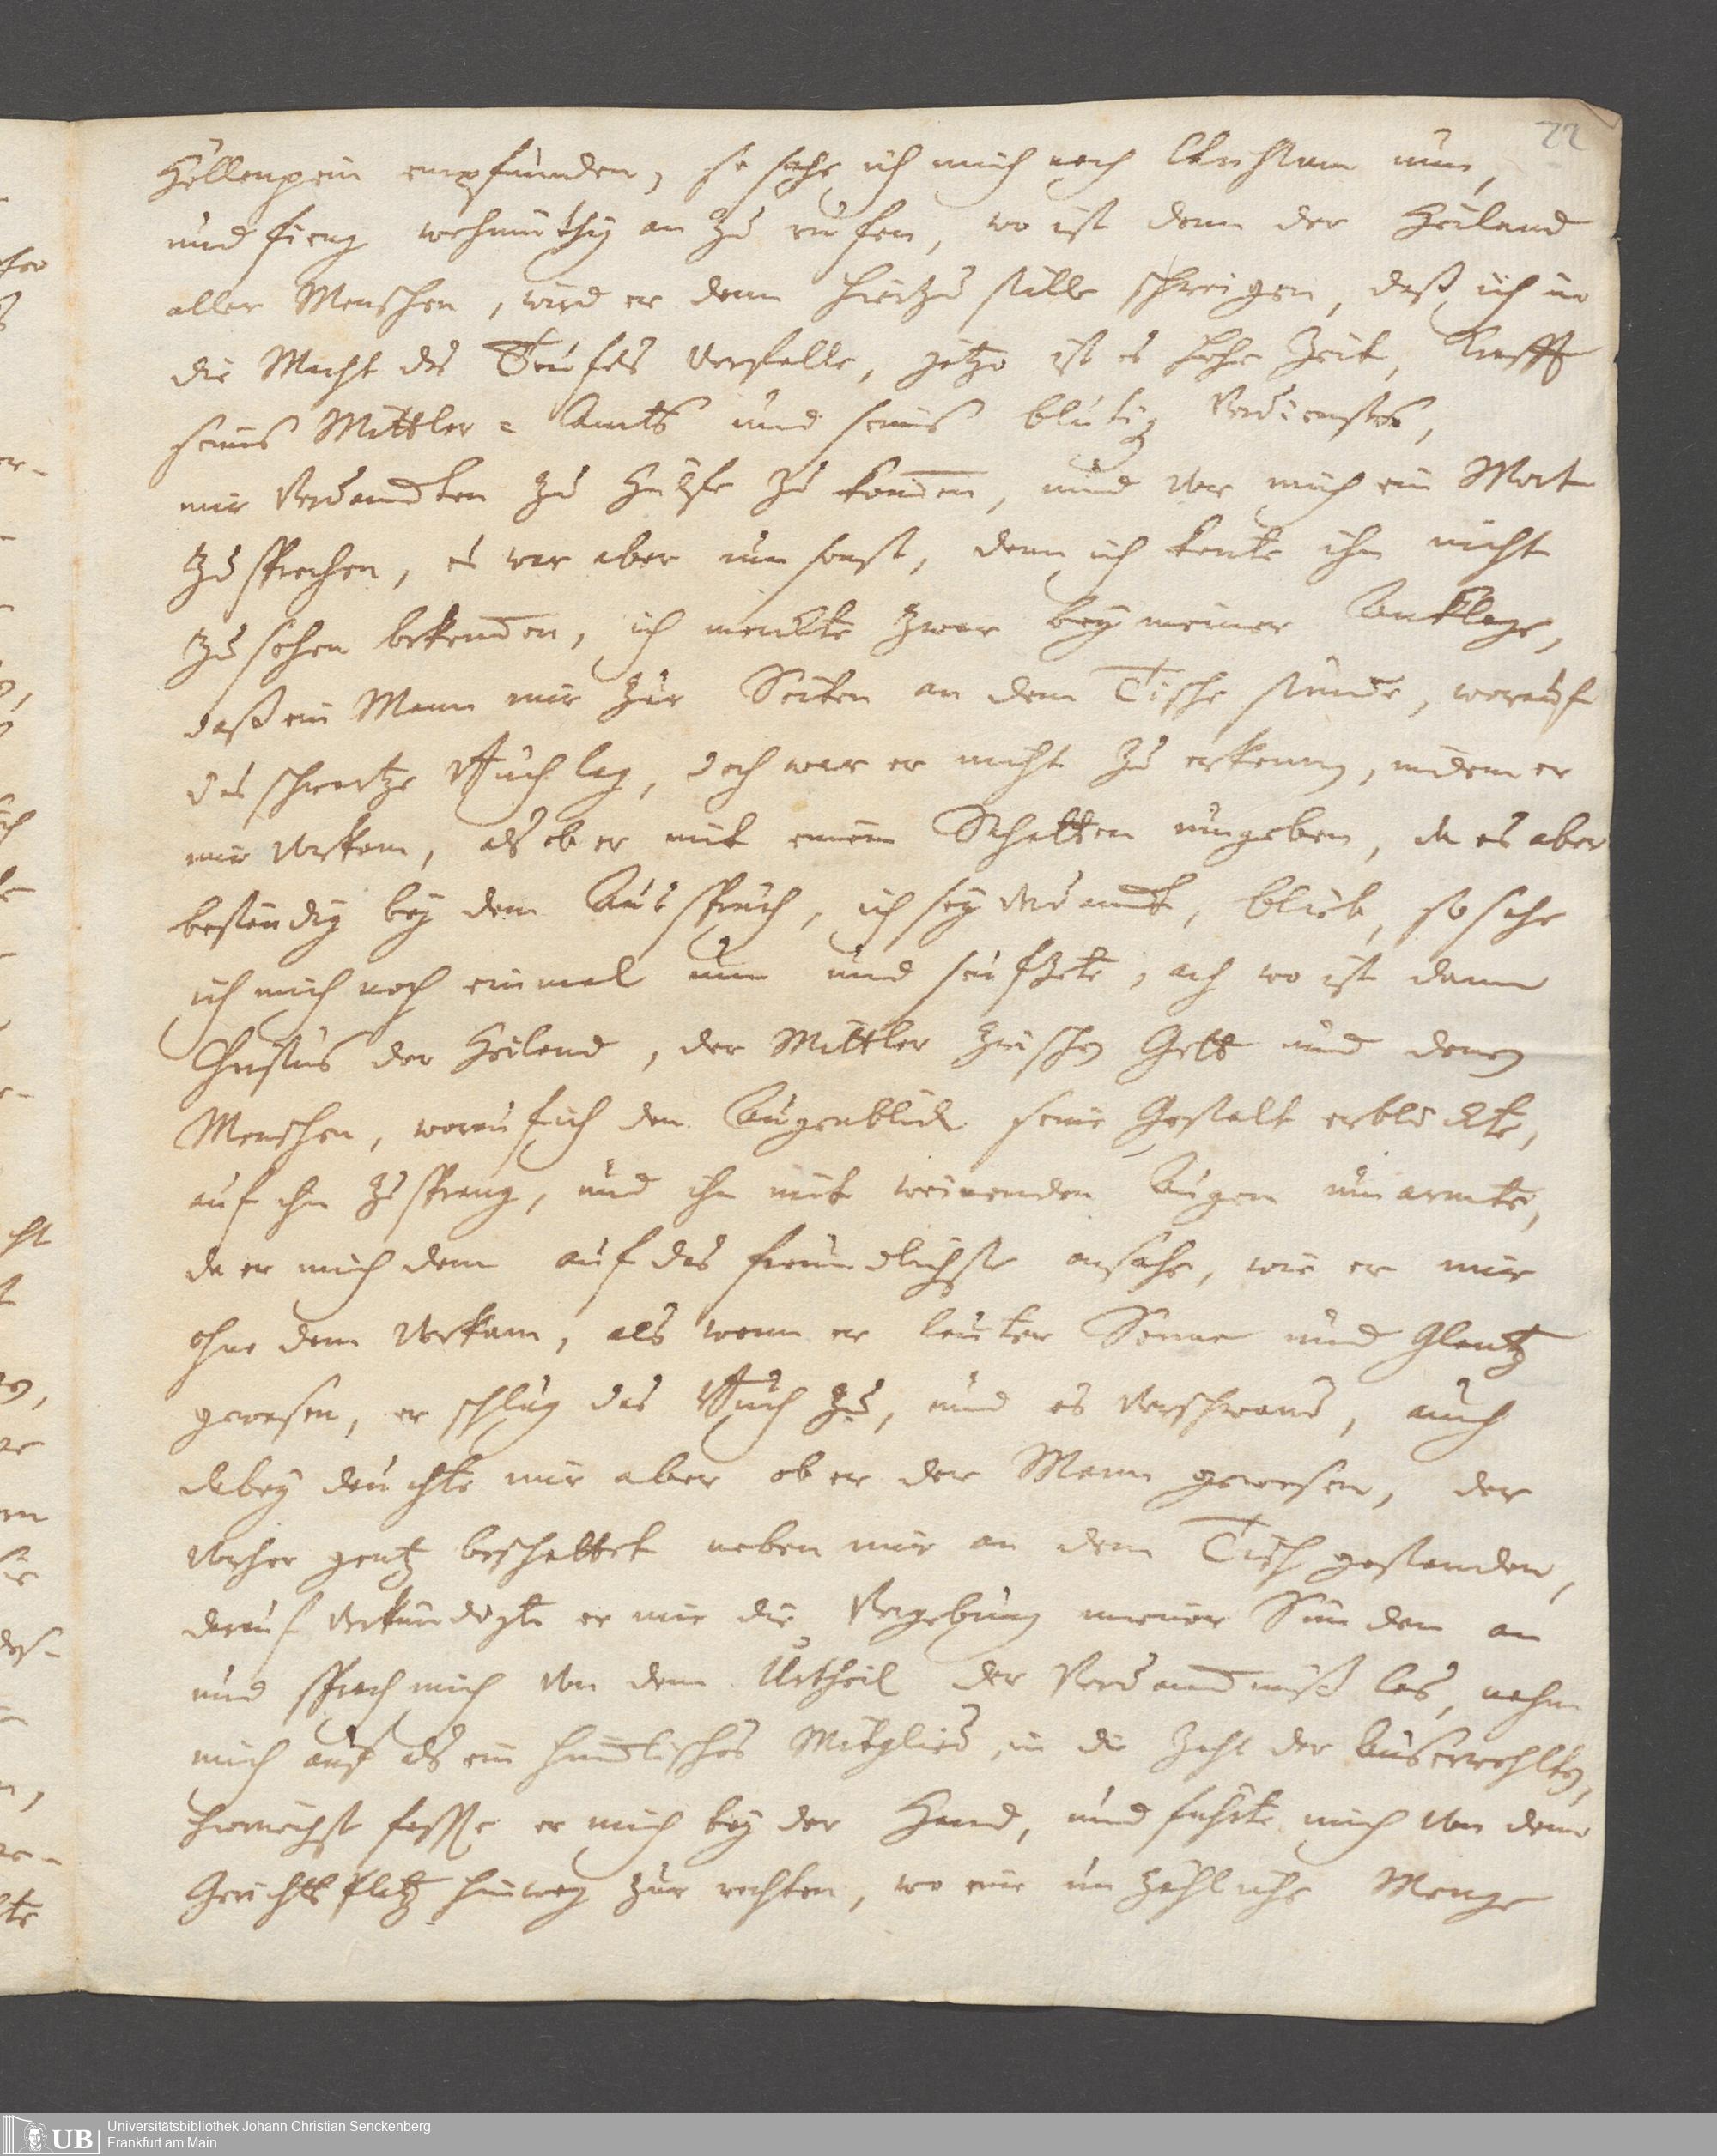 22
Höllenpein empfunden, so sahe ich mich nach Christum um,
und fieng wehmüthig an zu rufen, wo ist denn der Heiland
aller Menschen, wird er denn hierzu stille schweigen, daß ich in
die Macht des Teufels verfalle, jetzo ist es hohe Zeit, Krafft
seines Mittler=Amts und seines blutig Verdienstes,
mir Verdamten zu Hülfe zu kommen, und vor mich ein Wort
zu sprechen, es war aber um sonst, denn ich konte ihn nicht
zu sehen bekommen, ich merckte zwar bey meiner Anklage,
daß ein Mann mir zur Seiten an dem Tische stunde, worauf
das schwartze Buch lag, doch war er nicht zu erkennen, indem er
mir vorkam, als ob er mit einem Schatten umgeben, da es aber
beständig bey dem Ausspruch, ich sey verdamt, blieb, so sahe
ich mich noch einmal um und seufzete, ach wo ist dann
Christus der Heiland, der Mittler zwischen Gott und denen
Menschen, worauf ich den Augenblick seine Gestalt erblickte,
auf ihn zu sprang, und ihn mit weinenden Augen umarmte,
da er mich denn auf das freundlichste ansahe, wie er mir
ohne dem vorkam, als wenn er lauter Sonne und Glantz
gewesen, er schlug das Buch zu, und es verschwand, auch
dabey deuchte mir aber ob er der Mann gewesen, der
vorher gantz beschattet neben mir an dem Tisch gestanden,
darauf verkündigte er mir die Vergebung meiner Sünden an
und sprach mich von dem Urtheil der Verdammniß los, nahm
mich auf als ein himmlisches Mitglied, in die Zahl der Auserwehlten,
hernächst fasste er mich bey der Hand, und führte mich von dem
Gerichts platz hinweg zur rechten, wo eine unzählige Menge
UB
Universitätsbibliothek Johann Christian Senckenberg
Frankfurt am Main